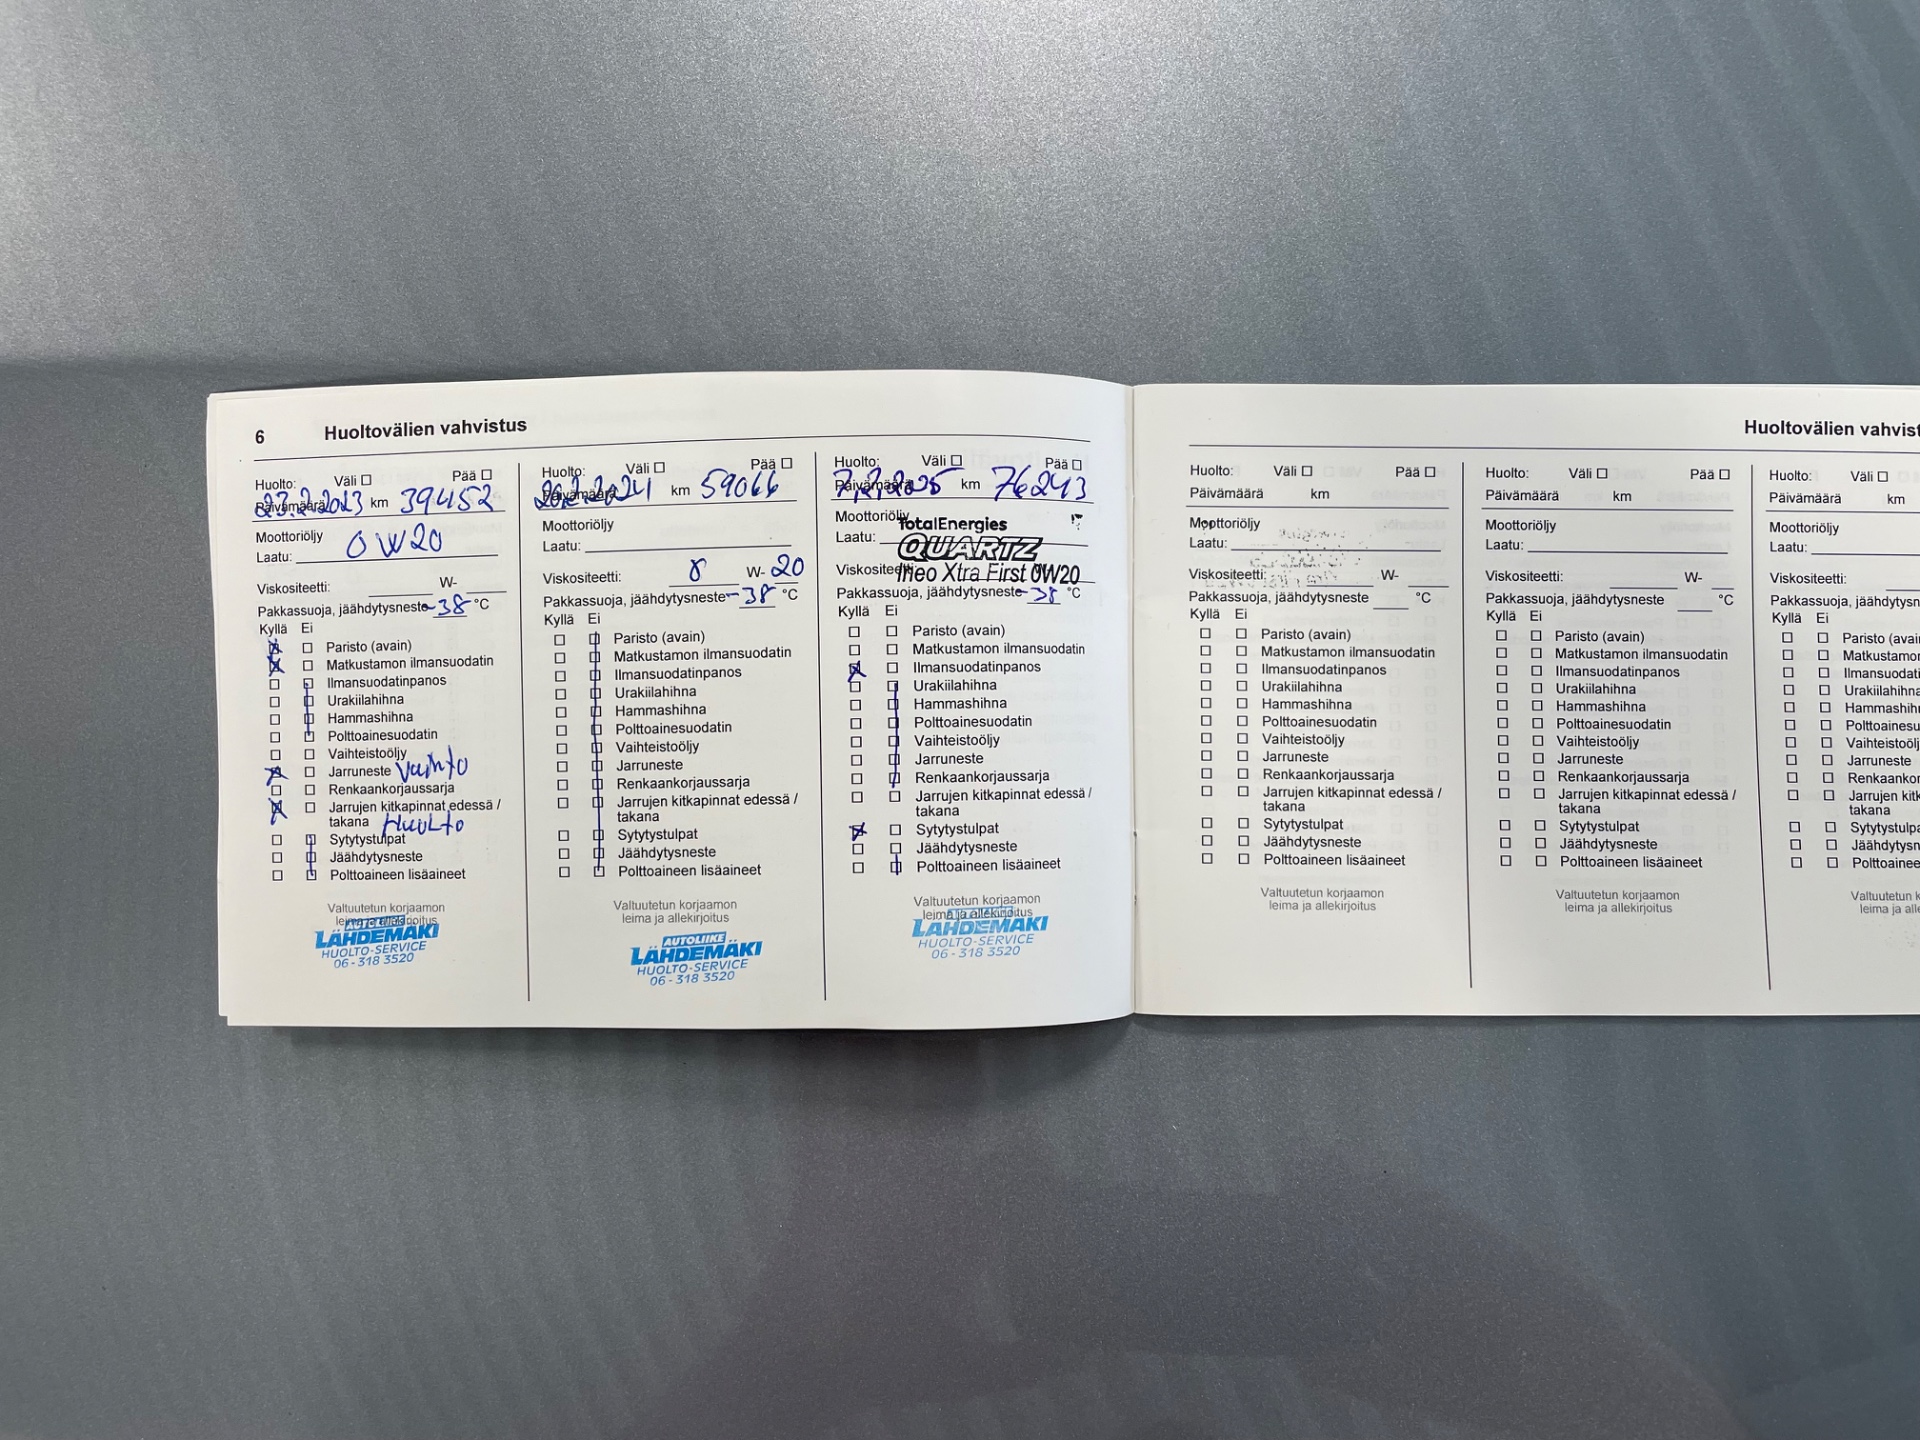 6 Huoltovälien vahvistus
Huolto: Väli Pää
Päivämäärä 23.2.2023 km 39452
Moottoriöljy
Laatu: 0W20
Viskositeetti: W-
Pakkassuoja, jäähdytysneste -38 °C
Kyllä Ei
Paristo (avain)
Matkustamon ilmansuodatin
Ilmansuodatinpanos
Urakiilahihna
Hammashihna
Polttoainesuodatin
Vaihteistoöljy
Jarruneste Vaihto
Renkaankorjaussarja
Jarrujen kitkapinnat edessä /
takana Huolto
Sytytystulpat
Jäähdytysneste
Polttoaineen lisäaineet
Valtuutetun korjaamon
leima ja allekirjoitus
AUTOLIIKE
LÄHDEMÄKI
HUOLTO-SERVICE
06 - 318 3520
Huolto: Väli Pää
Päivämäärä 20.2.2024 km 59066
Moottoriöljy
Laatu:
Viskositeetti: 0 W- 20
Pakkassuoja, jäähdytysneste -38 °C
Kyllä Ei
Paristo (avain)
Matkustamon ilmansuodatin
Ilmansuodatinpanos
Urakiilahihna
Hammashihna
Polttoainesuodatin
Vaihteistoöljy
Jarruneste
Renkaankorjaussarja
Jarrujen kitkapinnat edessä /
takana
Sytytystulpat
Jäähdytysneste
Polttoaineen lisäaineet
Valtuutetun korjaamon
leima ja allekirjoitus
AUTOLIIKE
LÄHDEMÄKI
HUOLTO-SERVICE
06 - 318 3520
Huolto: Väli Pää
Päivämäärä 7.2.2025 km 76243
Moottoriöljy TotalEnergies
Laatu: QUARTZ
Viskositeetti: Ineo Xtra First 0W20
Pakkassuoja, jäähdytysneste -38 °C
Kyllä Ei
Paristo (avain)
Matkustamon ilmansuodatin
Ilmansuodatinpanos
Urakiilahihna
Hammashihna
Polttoainesuodatin
Vaihteistoöljy
Jarruneste
Renkaankorjaussarja
Jarrujen kitkapinnat edessä /
takana
Sytytystulpat
Jäähdytysneste
Polttoaineen lisäaineet
Valtuutetun korjaamon
leima ja allekirjoitus
LÄHDEMÄKI
HUOLTO-SERVICE
06 - 318 3520
Huoltovälien vahvist
Huolto: Väli Pää
Päivämäärä km
Moottoriöljy
Laatu:
Viskositeetti: W-
Pakkassuoja, jäähdytysneste °C
Kyllä Ei
Paristo (avain)
Matkustamon ilmansuodatin
Ilmansuodatinpanos
Urakiilahihna
Hammashihna
Polttoainesuodatin
Vaihteistoöljy
Jarruneste
Renkaankorjaussarja
Jarrujen kitkapinnat edessä /
takana
Sytytystulpat
Jäähdytysneste
Polttoaineen lisäaineet
Valtuutetun korjaamon
leima ja allekirjoitus
Huolto: Väli Pää
Päivämäärä km
Moottoriöljy
Laatu:
Viskositeetti: W-
Pakkassuoja, jäähdytysneste °C
Kyllä Ei
Paristo (avain)
Matkustamon ilmansuodatin
Ilmansuodatinpanos
Urakiilahihna
Hammashihna
Polttoainesuodatin
Vaihteistoöljy
Jarruneste
Renkaankorjaussarja
Jarrujen kitkapinnat edessä /
takana
Sytytystulpat
Jäähdytysneste
Polttoaineen lisäaineet
Valtuutetun korjaamon
leima ja allekirjoitus
Huolto: Väli
Päivämäärä km
Moottoriöljy
Laatu:
Viskositeetti:
Pakkassuoja, jäähdytysn
Kyllä Ei
Paristo (avai
Matkustamon
Ilmansuodati
Urakiilahihna
Hammashihn
Polttoainesu
Vaihteistoölj
Jarruneste
Renkaankorj
Jarrujen kitka
takana
Sytytystulpat
Jäähdytysn
Polttoaineen
Valtuutetun ko
leima ja alle